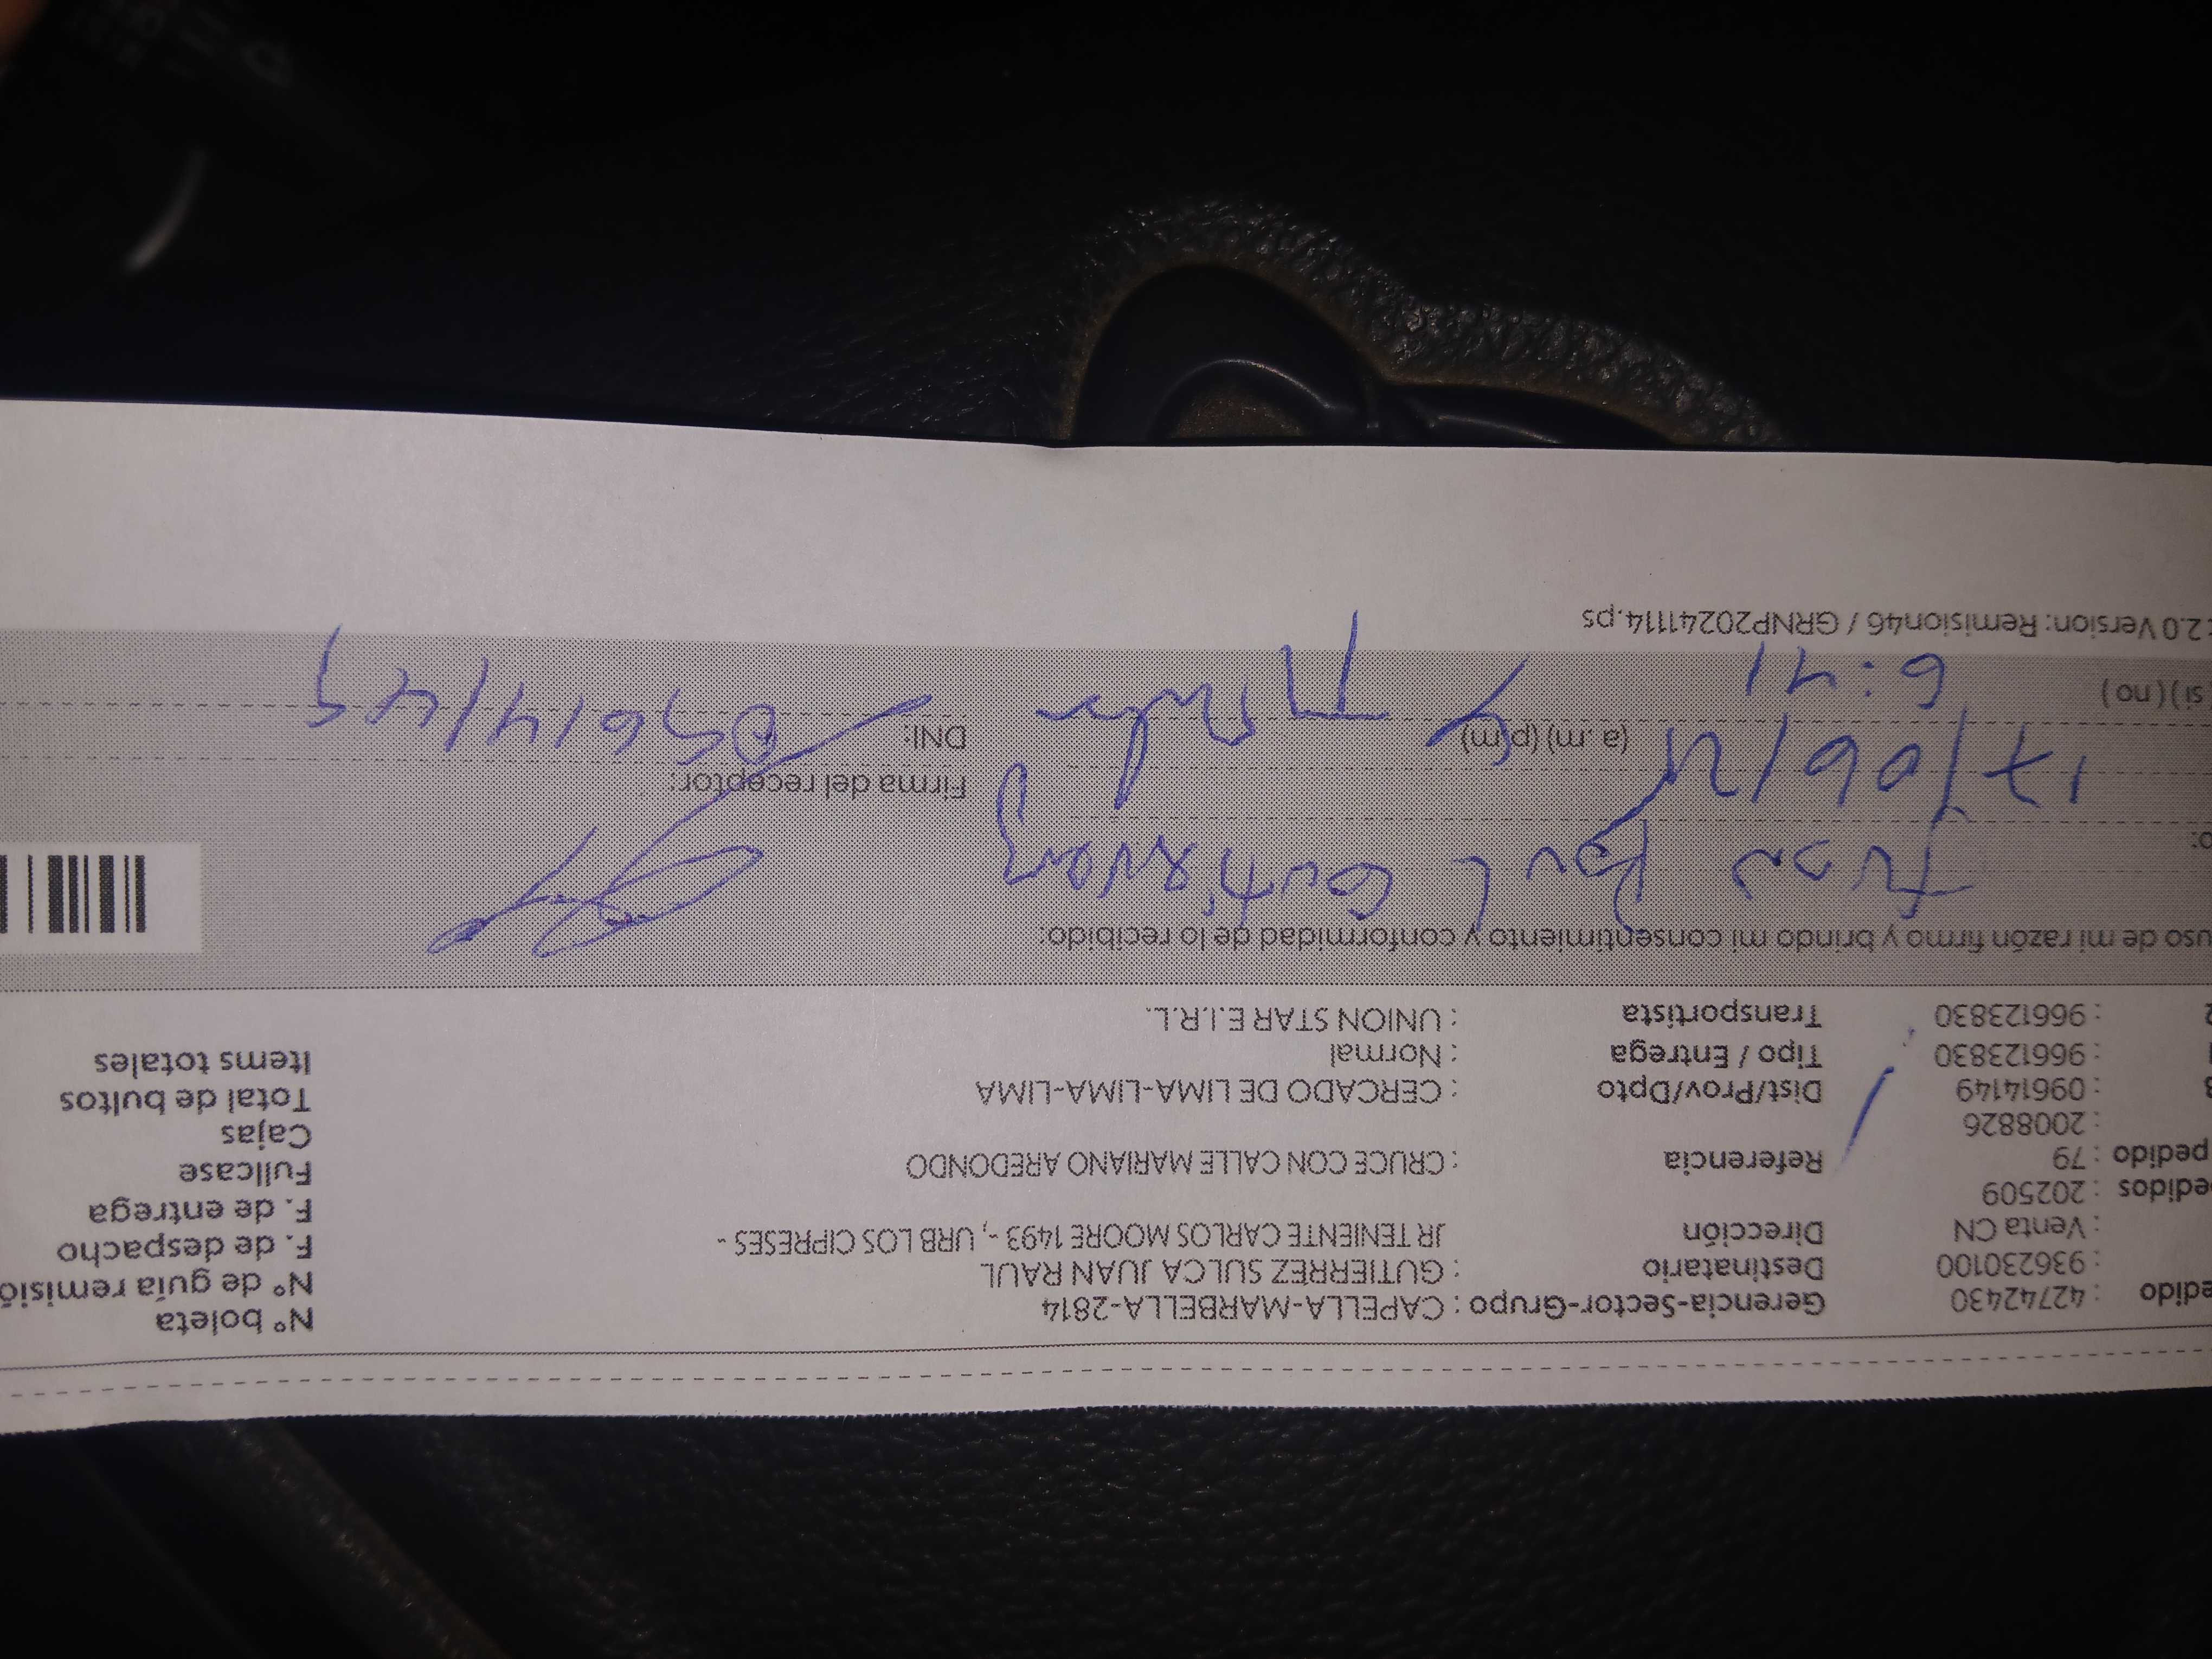 edido : 42742430 Gerencia-Sector-Grupo : CAPELLA-MARBELLA-2814 N° boleta
: 936230100 Destinatario : GUTIERREZ SULCA JUAN RAUL N° de guía remisió
: Venta CN Dirección JR TENIENTE CARLOS MOORE 1493 -, URB LOS CIPRESES - F. de despacho
edidos : 202509 F. de entrega
pedido : 79 Referencia : CRUCE CON CALLE MARIANO AREDONDO Fullcase
: 2008826 Cajas
: 09614149 Dist/Prov/Dpto : CERCADO DE LIMA-LIMA-LIMA Total de bultos
: 966123830 Tipo / Entrega : Normal Items totales
: 966123830 Transportista : UNION STAR E.I.R.L.
uso de mi razón firmo y brindo mi consentimiento y conformidad de lo recibido:
Juan Raul Gutierrez
o: Firma del receptor:
17/06/21 (a. m) (p.m) DNI: 09614149
si ) ( no ) 6:41
: 2.0 Version: Remision46 / GRNP20241114.ps